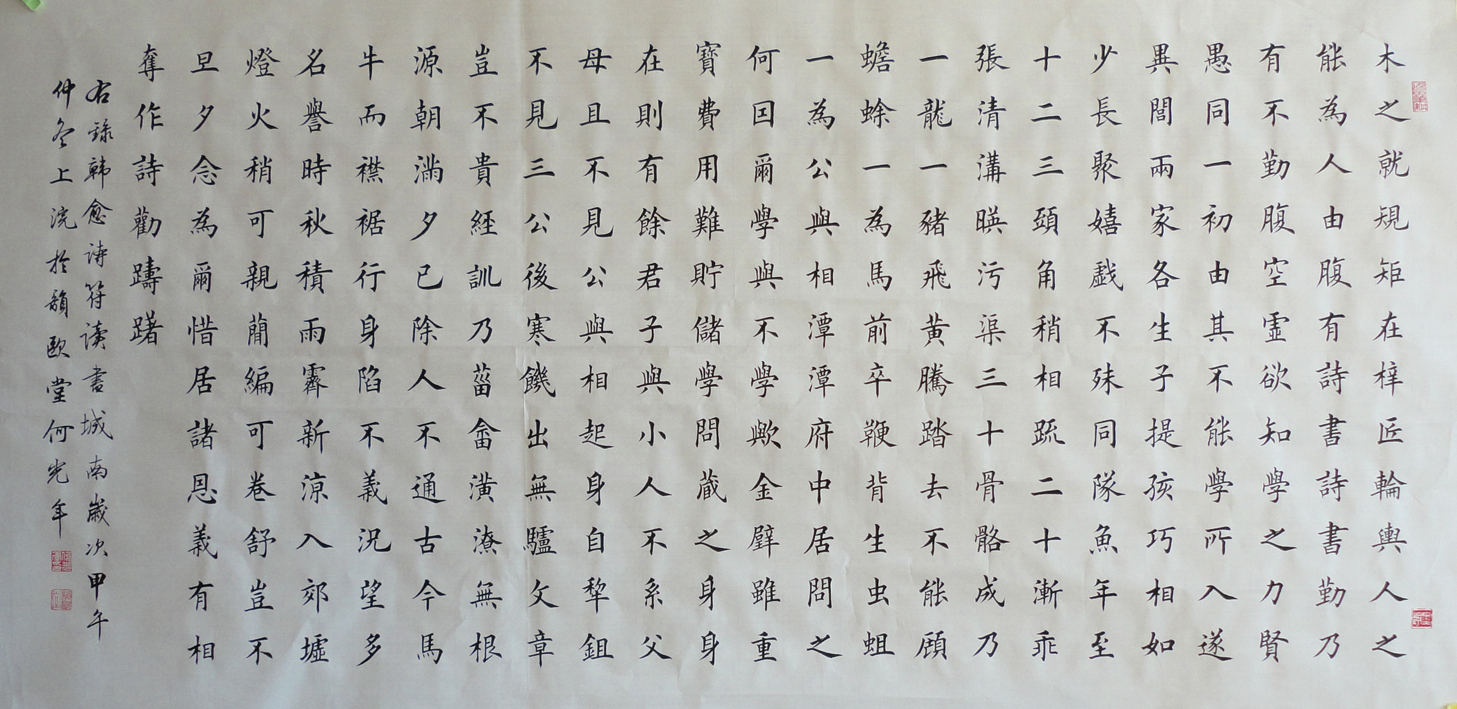 木之就規矩在梓匠輪輿人之
能為人由腹有詩書詩書勤乃
有不勤腹空虛欲知學之力賢
愚同一初由其不能學所入遂
異閭兩家各生子提孩巧相如
少長聚嬉戲不殊同隊魚年至
十二三頭角稍相疏二十漸乖
張清溝暎污渠三十骨骼成乃
一龍一豬飛黃騰踏去不能顧
蟾蜍一為馬前卒鞭背生虫蛆
一為公與相潭潭府中居問之
何囙爾學與不學歟金璧雖重
寶費用難貯儲學問藏之身身
在則有餘君子與小人不系父
母且不見公與相起身自犁鉏
不見三公後寒饑出無驢文章
豈不貴經訓乃菑畬潢潦無根
源朝滿夕已除人不通古今馬
牛而襟裾行身陷不義況望多
名譽時秋積雨霽新涼入郊墟
燈火稍可親簡編可卷舒豈不
旦夕念為爾惜居諸恩義有相
奪作詩勸躊躇
右錄韓愈詩符讀書城南歲次甲午
仲冬上浣於韻歐堂何光年